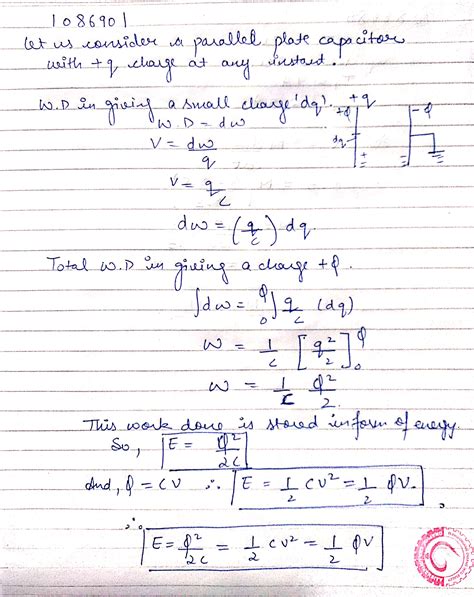 1086901
Let us consider a parallel plate capacitor
with +q charge at any instant.
W.D in giving a small charge 'dq'.
+Q +q -Q
W.D = dw
dq
V = dw/q
+
V = q/C
dw = (q/c) dq.
Total W.D in giving a charge +Q.
∫dw = Q0∫ q/c (dq)
W = 1/c [q²/2]Q0
W = 1/C Q²/2.
This work done is stored in form of energy.
So, E = Q²/2C
And, Q = CV ∴ E = 1/2 CV² = 1/2 QV.
∴ E = Q²/2C = 1/2 CV² = 1/2 QV